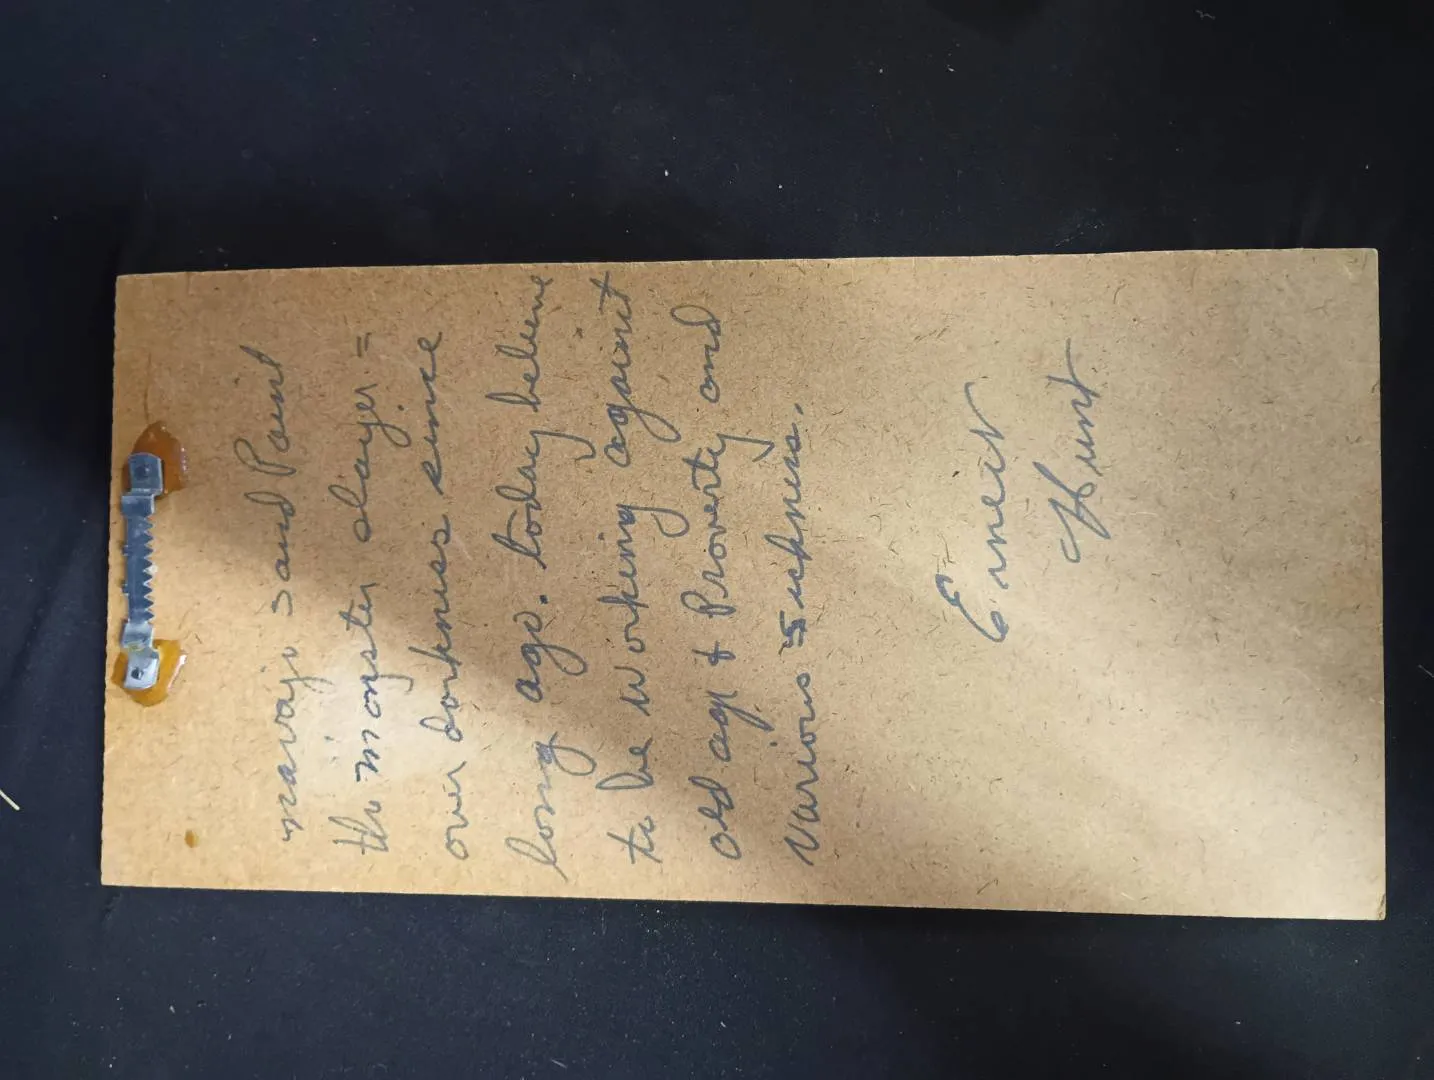 navajo sand Paint
the monster slayer =
over darkness since
long ago. today believe
to be working against
old age & Proverty and
various sickness.
Ernest
Hunt